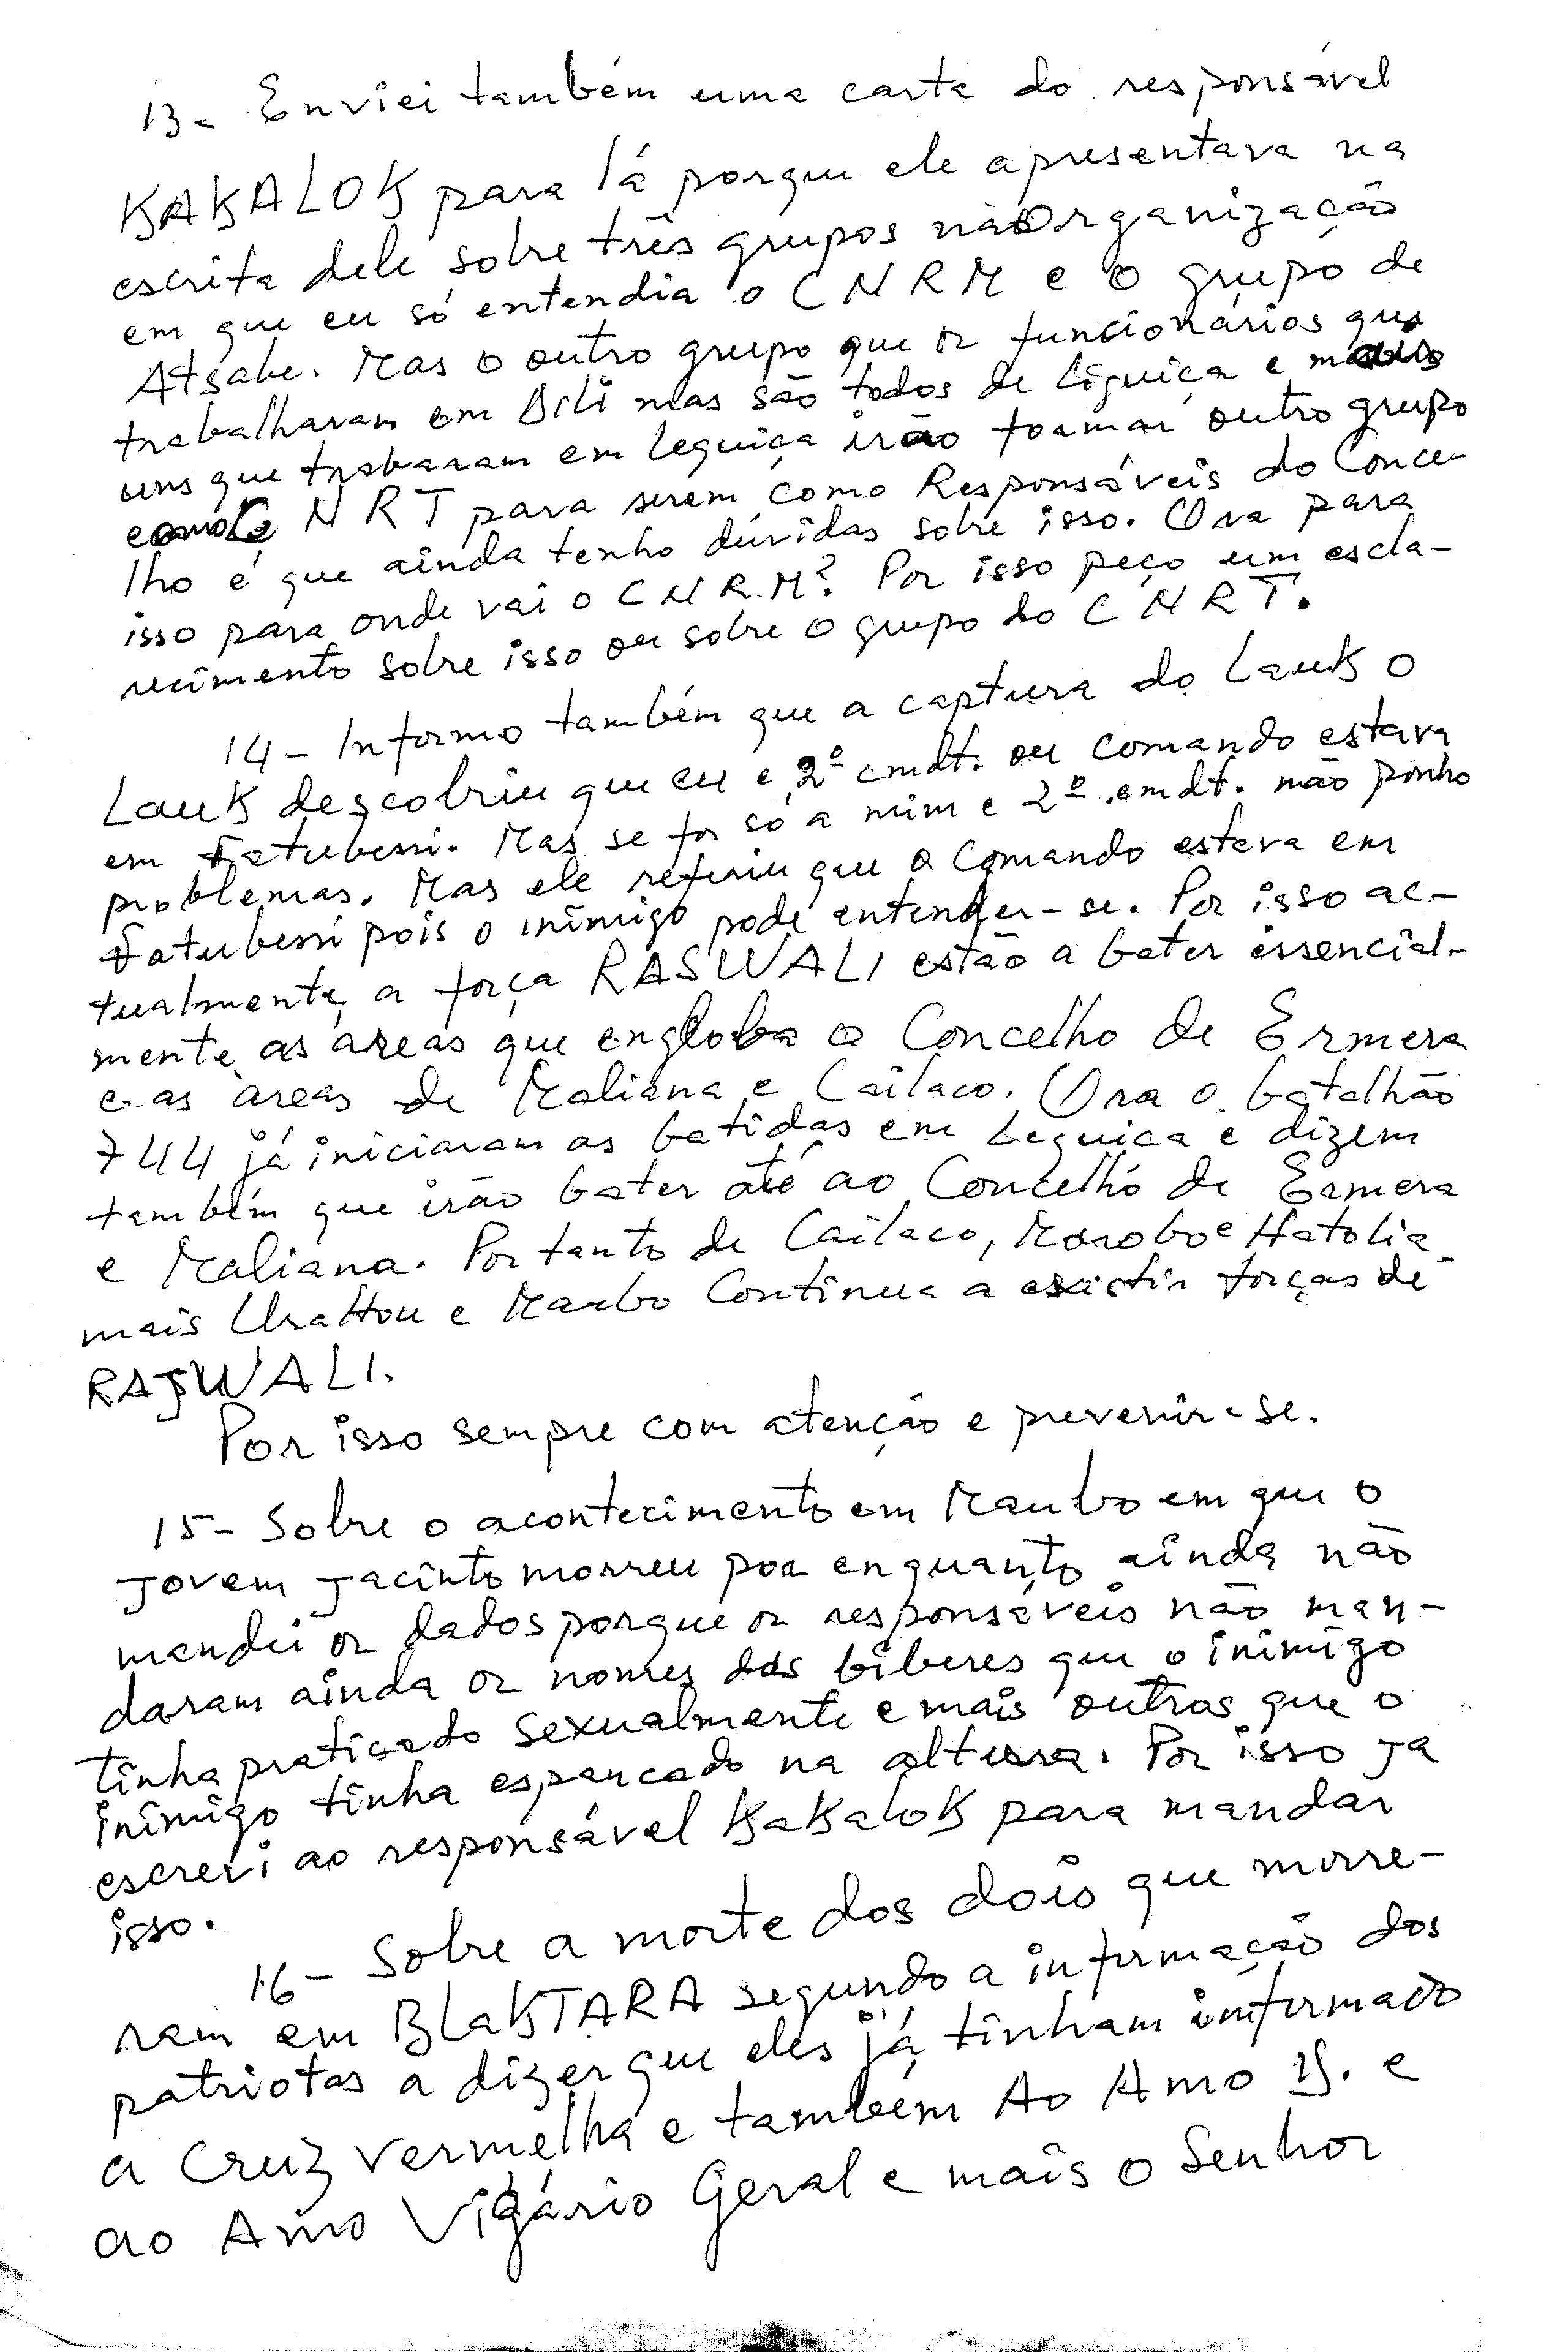 13- Enviei também uma carta do responsável
KAKALOK para lá porque ele apresentava na
escrita dele sobre três grupos na organização
em que eu só entendia o CNRM e o grupo de
Atsabe. Mas o outro grupo que os funcionários que
trabalharam em Dili mas são todos de Liquiça e mais
uns que trabaram em Lequiça irão formar outro grupo
como C N R T para serem como Responsáveis do Conce-
lho é que ainda tenho dúvidas sobre isso. Ora para
isso para onde vai o C N R M? Por isso peço um escla-
recimento sobre isso ou sobre o grupo do C N R T.
14- Informo também que a captura do Lauk o
Lauk descobriu que eu e 2º cmdt. ou comando estava
em Fatubessi. Mas se for só a mim e 2º cmdt. não ponho
problemas. Mas ele referiu que o comando estava em
Fatubessi pois o inimigo pode entender-se. Por isso ac-
tualmente, a força RASWALI estão a bater essencial-
mente as áreas que engloba o Concelho de Ermera
e as áreas de Maliana e Cailaco. Ora o batalhão
744 já iniciaram as batidas em Lequiça e dizem
também que irão bater até ao Concelho de Ermera
e Maliana. Portanto de Cailaco, Marobo e Hatolia
mais UraHou e Maubo Continua a existir forças de
RAJWALI.
Por isso sempre com atenção e prevenir-se.
15- Sobre o acontecimento em Maubo em que o
jovem Jacinto morreu por enquanto ainda não
mandei os dados porque os responsáveis não man-
daram ainda os nomes das biberes que o inimigo
tinha praticado sexualmente e mais outros que o
inimigo tinha espancado na altura. Por isso já
escrevi ao responsável KaKaloK para mandar
isso.
16- Sobre a morte dos dois que morre-
ram em BLaKTARA segundo a informação dos
patriotas a dizer que eles já tinham informado
a Cruz Vermelha e também Ao Amo B. e
ao Amo Vigário Geral e mais o Senhor